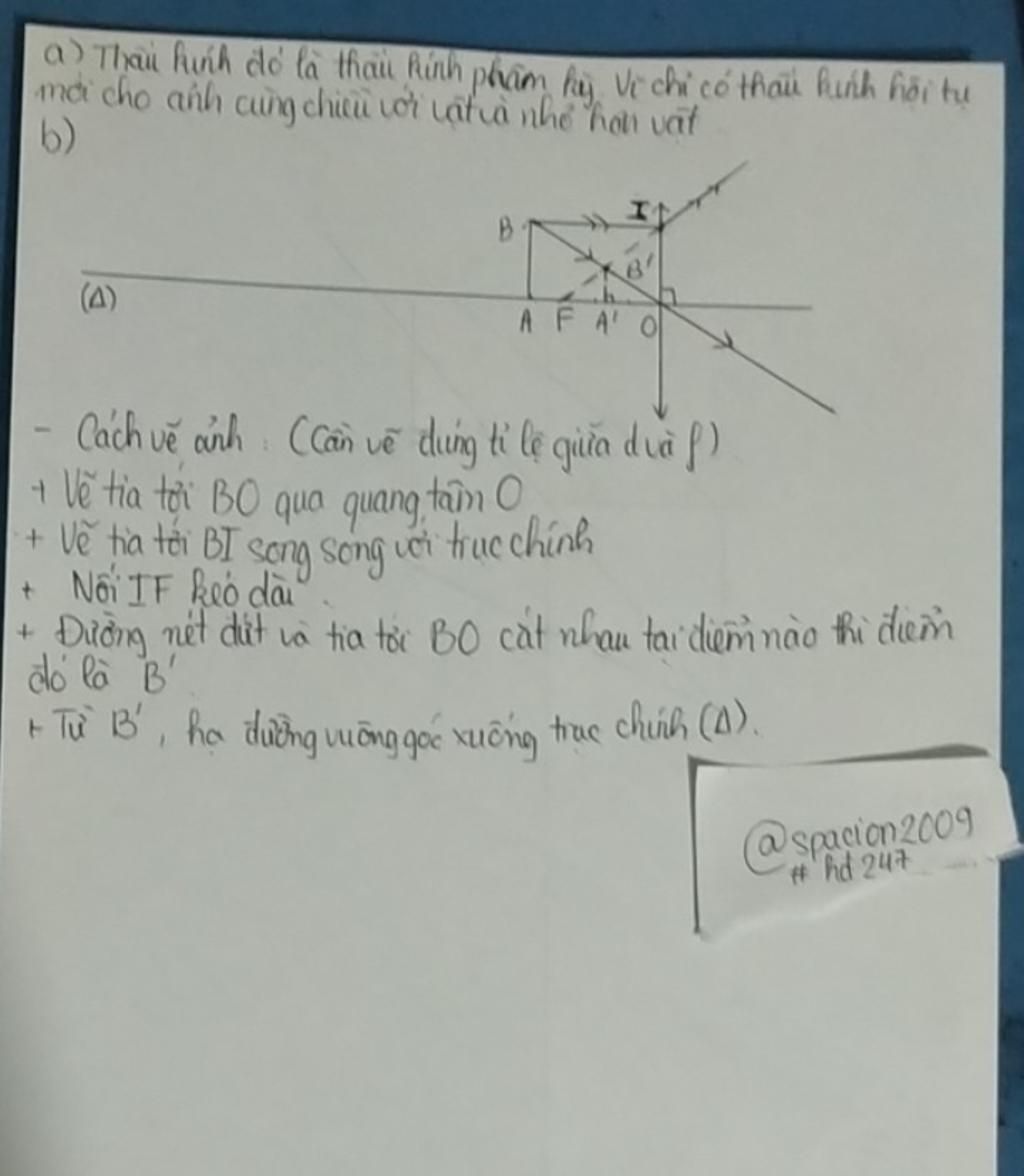 a) Thấu kính đó là thấu kính phâm kỳ. Vì chỉ có thấu kính hội tụ
mới cho ảnh cùng chiều với vật và nhỏ hơn vật
b)
I
B
B'
(Δ)
A F A' O
- Cách vẽ ảnh : (Cần vẽ đúng tỉ lệ giữa d và f)
+ Vẽ tia tới BO qua quang tâm O
+ Vẽ tia tới BI song song với trục chính
+ Nối IF kéo dài.
+ Đường nét đứt và tia tới BO cắt nhau tại điểm nào thì điểm
đó là B'
+ Từ B', hạ đường vuông góc xuống trục chính (Δ).
@spacion2009
# hd247